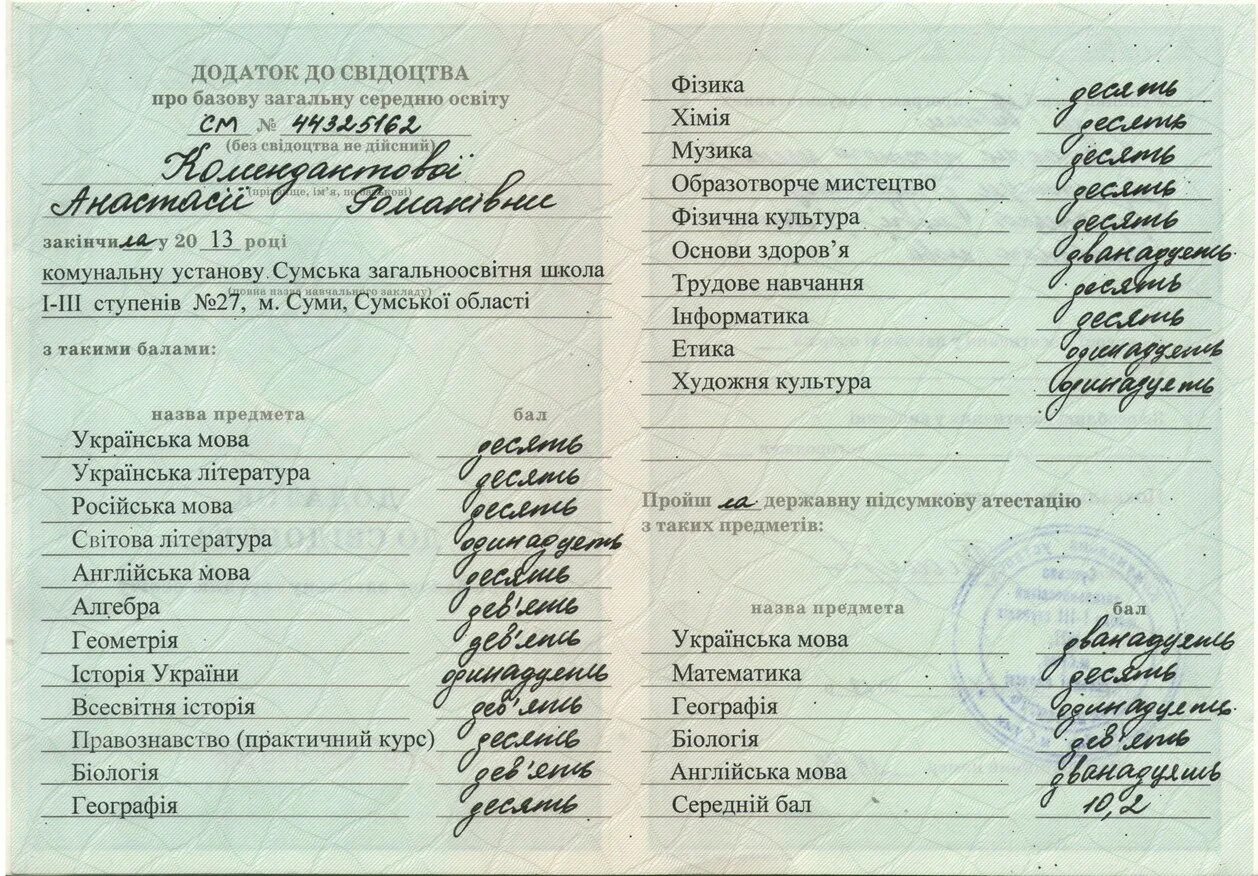 ДОДАТОК ДО СВІДОЦТВА
про базову загальну середню освіту
СМ № 44325162
(без свідоцтва не дійсний)
Комендантової
(прізвище, ім’я, по батькові)
Анастасії Романівни
закінчила у 20 13 році
комунальну установу Сумська загальноосвітня школа
(повна назва навчального закладу)
І-ІІІ ступенів №27, м. Суми, Сумської області
з такими балами:
назва предмета бал
Українська мова десять
Українська література десять
Російська мова десять
Світова література одинадцять
Англійська мова десять
Алгебра дев'ять
Геометрія дев'ять
Історія України одинадцять
Всесвітня історія дев'ять
Правознавство (практичний курс) десять
Біологія дев'ять
Географія десять
Фізика десять
Хімія десять
Музика десять
Образотворче мистецтво десять
Фізична культура десять
Основи здоров’я дванадцять
Трудове навчання десять
Інформатика десять
Етика одинадцять
Художня культура одинадцять
Пройшла державну підсумкову атестацію
з таких предметів:
назва предмета бал
Українська мова дванадцять
Математика десять
Географія одинадцять
Біологія дев'ять
Англійська мова дванадцять
Середній бал 10,2